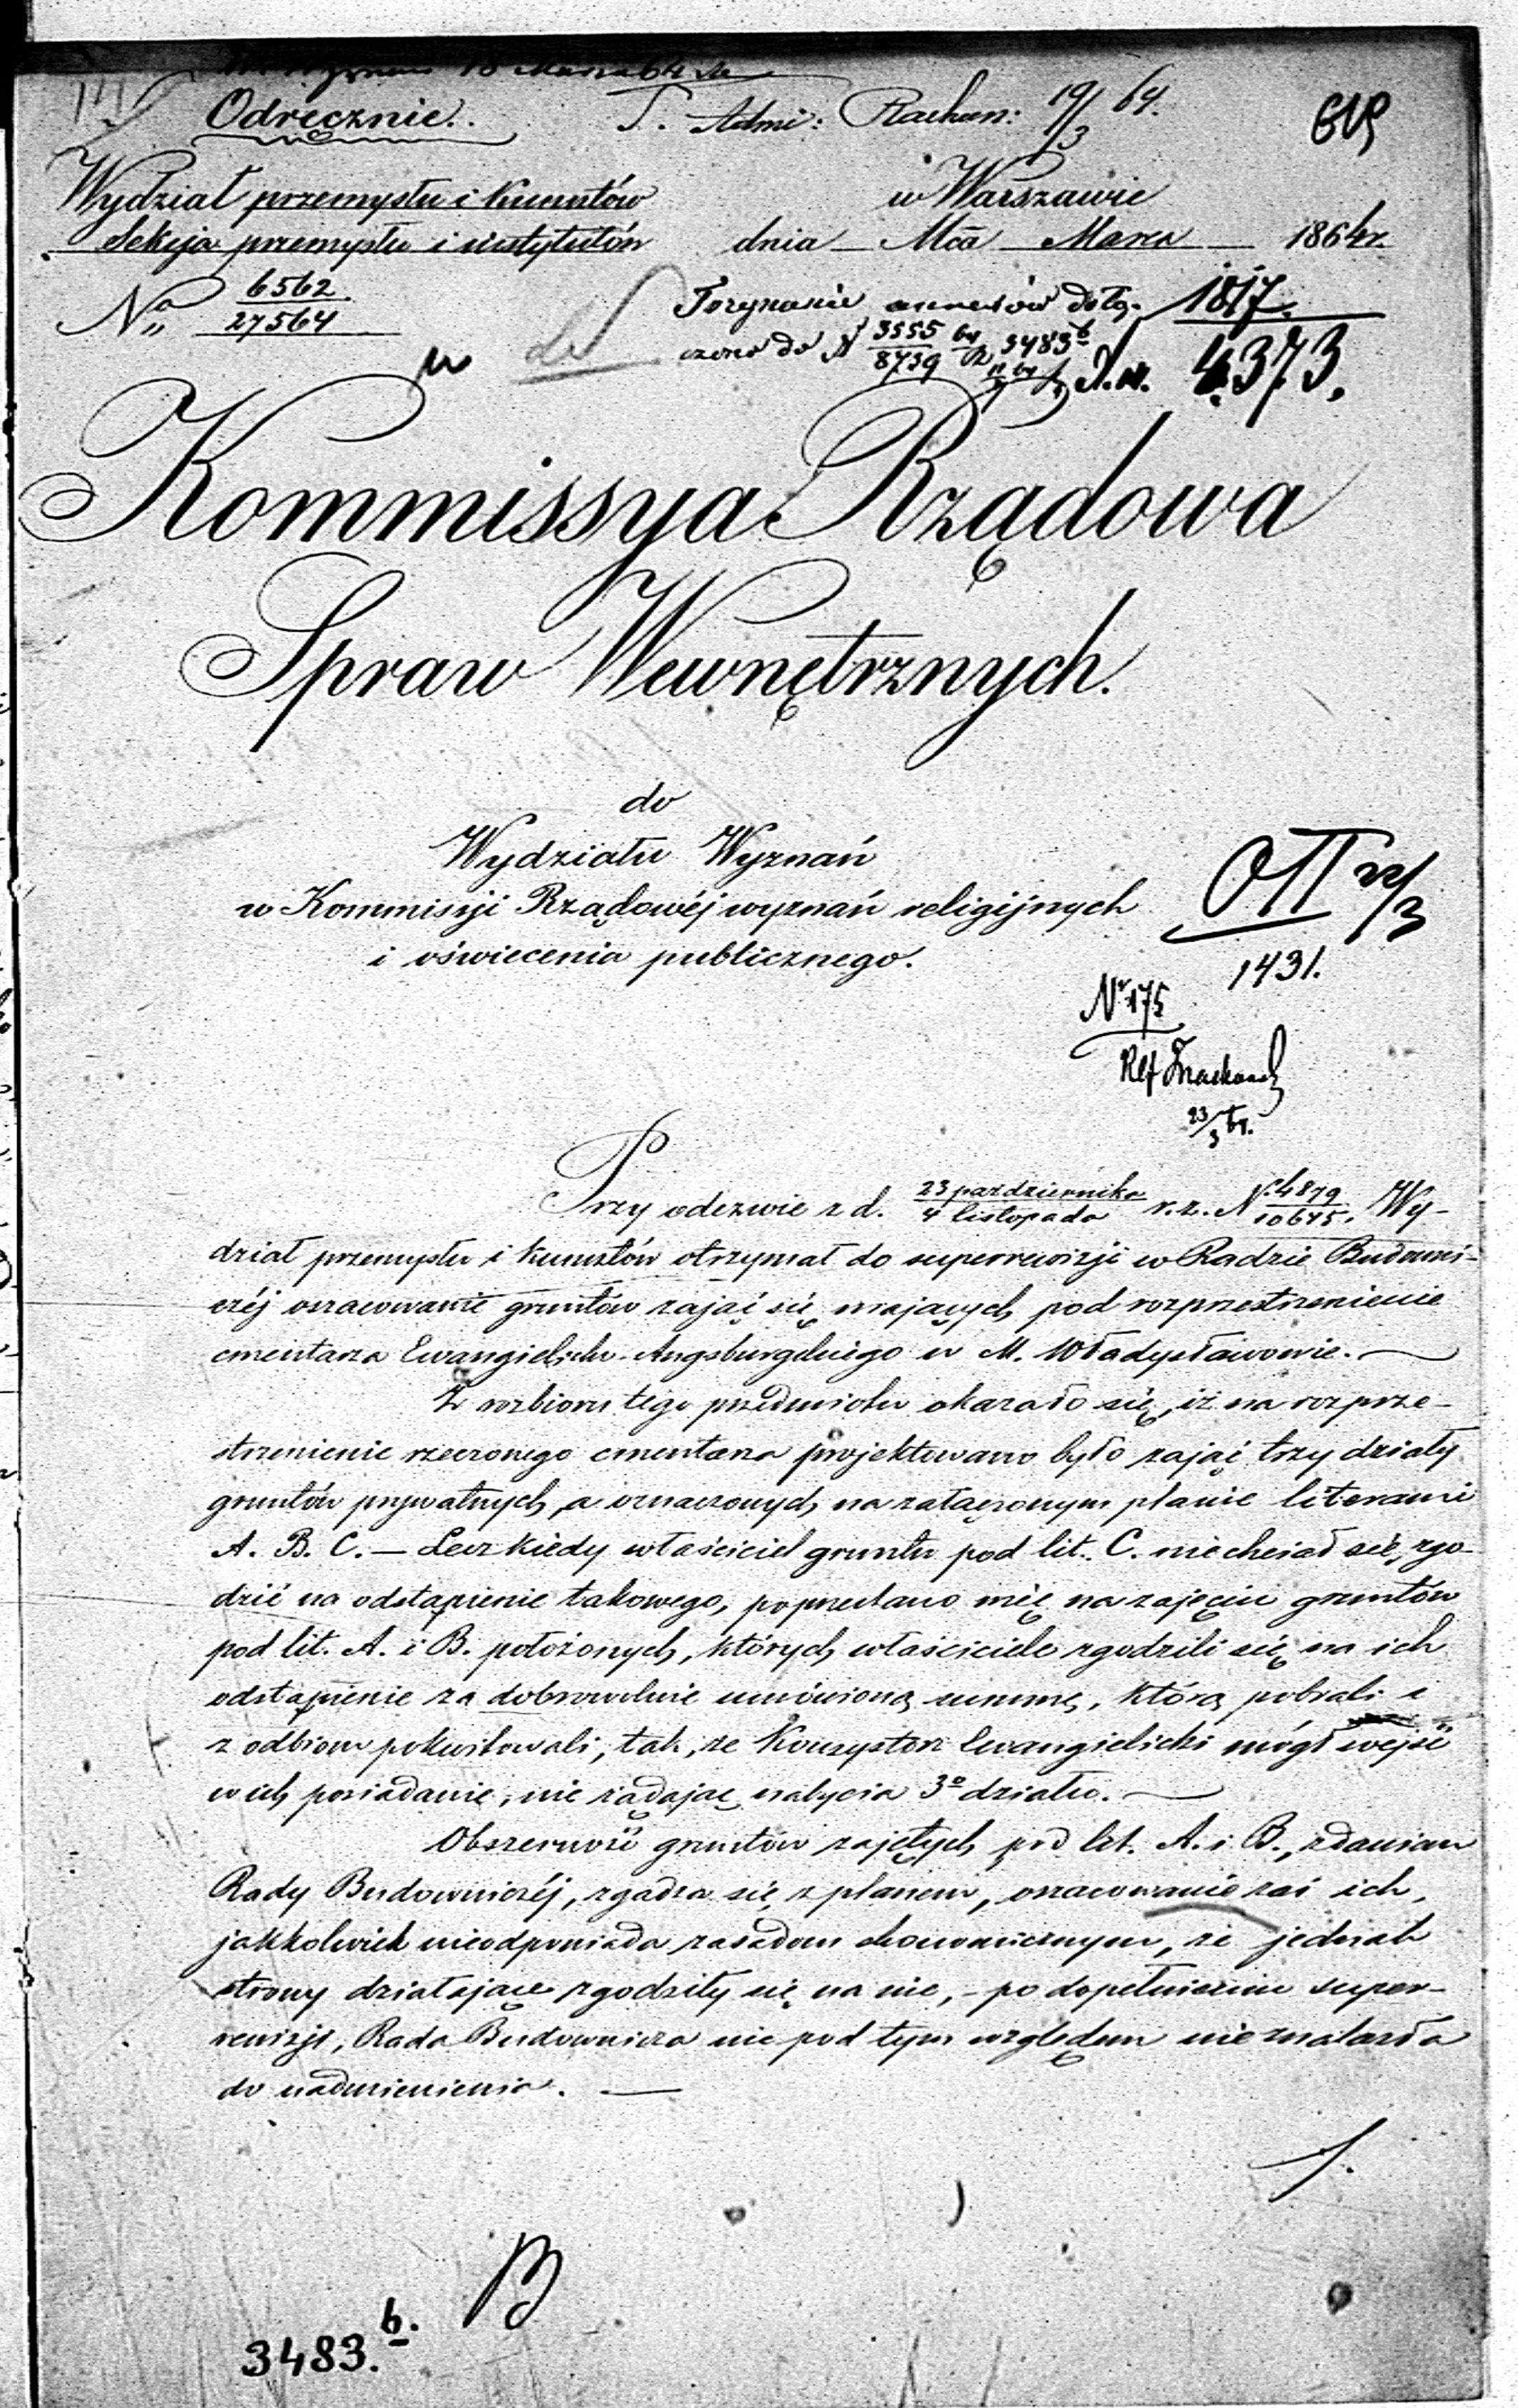 18 Marca 64
Odręcznie.
S. Admi: Rachun: 19/3 64.
Wydział przemysłu i kunsztów
Sekcja przemysłu i instytutów
w Warszawie
dnia Mca Marca 1864 r.
No 6562/27564
1817.
czono do N 3555/8739 64 3483 b
4373.
Kommissya Rządowa
Spraw Wewnętrznych.
do
Wydziału Wyznań
w Kommissyi Rządowéj wyznań religijnych
i oświecenia publicznego.
22/3
1431.
Nr 175
Ref
23/3 64.
Przy odezwie z d. 23 października/4 listopada r. z. N. 4879/10645. Wy-
dział przemysłu i kunsztów otrzymał do superrewizji w Radzie Budowni-
czéj oszacowanie gruntów zająć się mających pod rozprzestrzenienie
cmentarza Ewangielicko-Augsburgskiego w M. Władysławowie. —
Z rozbioru tego przedmiotu okazało się, iż na rozprze-
strzenienie rzeczonego cmentarza projektowano było zająć trzy działy
gruntów prywatnych, a oznaczonych na załączonym planie literami
A. B. C. — Lecz kiedy właściciel gruntu pod lit. C. nie chciał się zgo-
dzić na odstąpienie takowego, poprzestano więc na zajęciu gruntów
pod lit. A. i B. położonych, których właściciele zgodzili się na ich
odstąpienie za dobrowolnie umówioną summę, którą pobrali i
z odbioru pokwitowali, tak, że Konsystorz Ewangielicki mógł wejść
w ich posiadanie, nie żądając nabycia 3o działu. —
Obszerność gruntów zajętych pod lit. A. i B., zdaniem
Rady Budowniczéj, zgadza się z planem, oszacowanie zaś ich,
jakkolwiek nieodpowiada zasadom ekonomicznym, że jednak
strony działające zgodziły się na nie, - po dopełnieniu super-
rewizji, Rada Budownicza nic pod tym względem nie znalazła
do nadmienienia. —
3483. b.